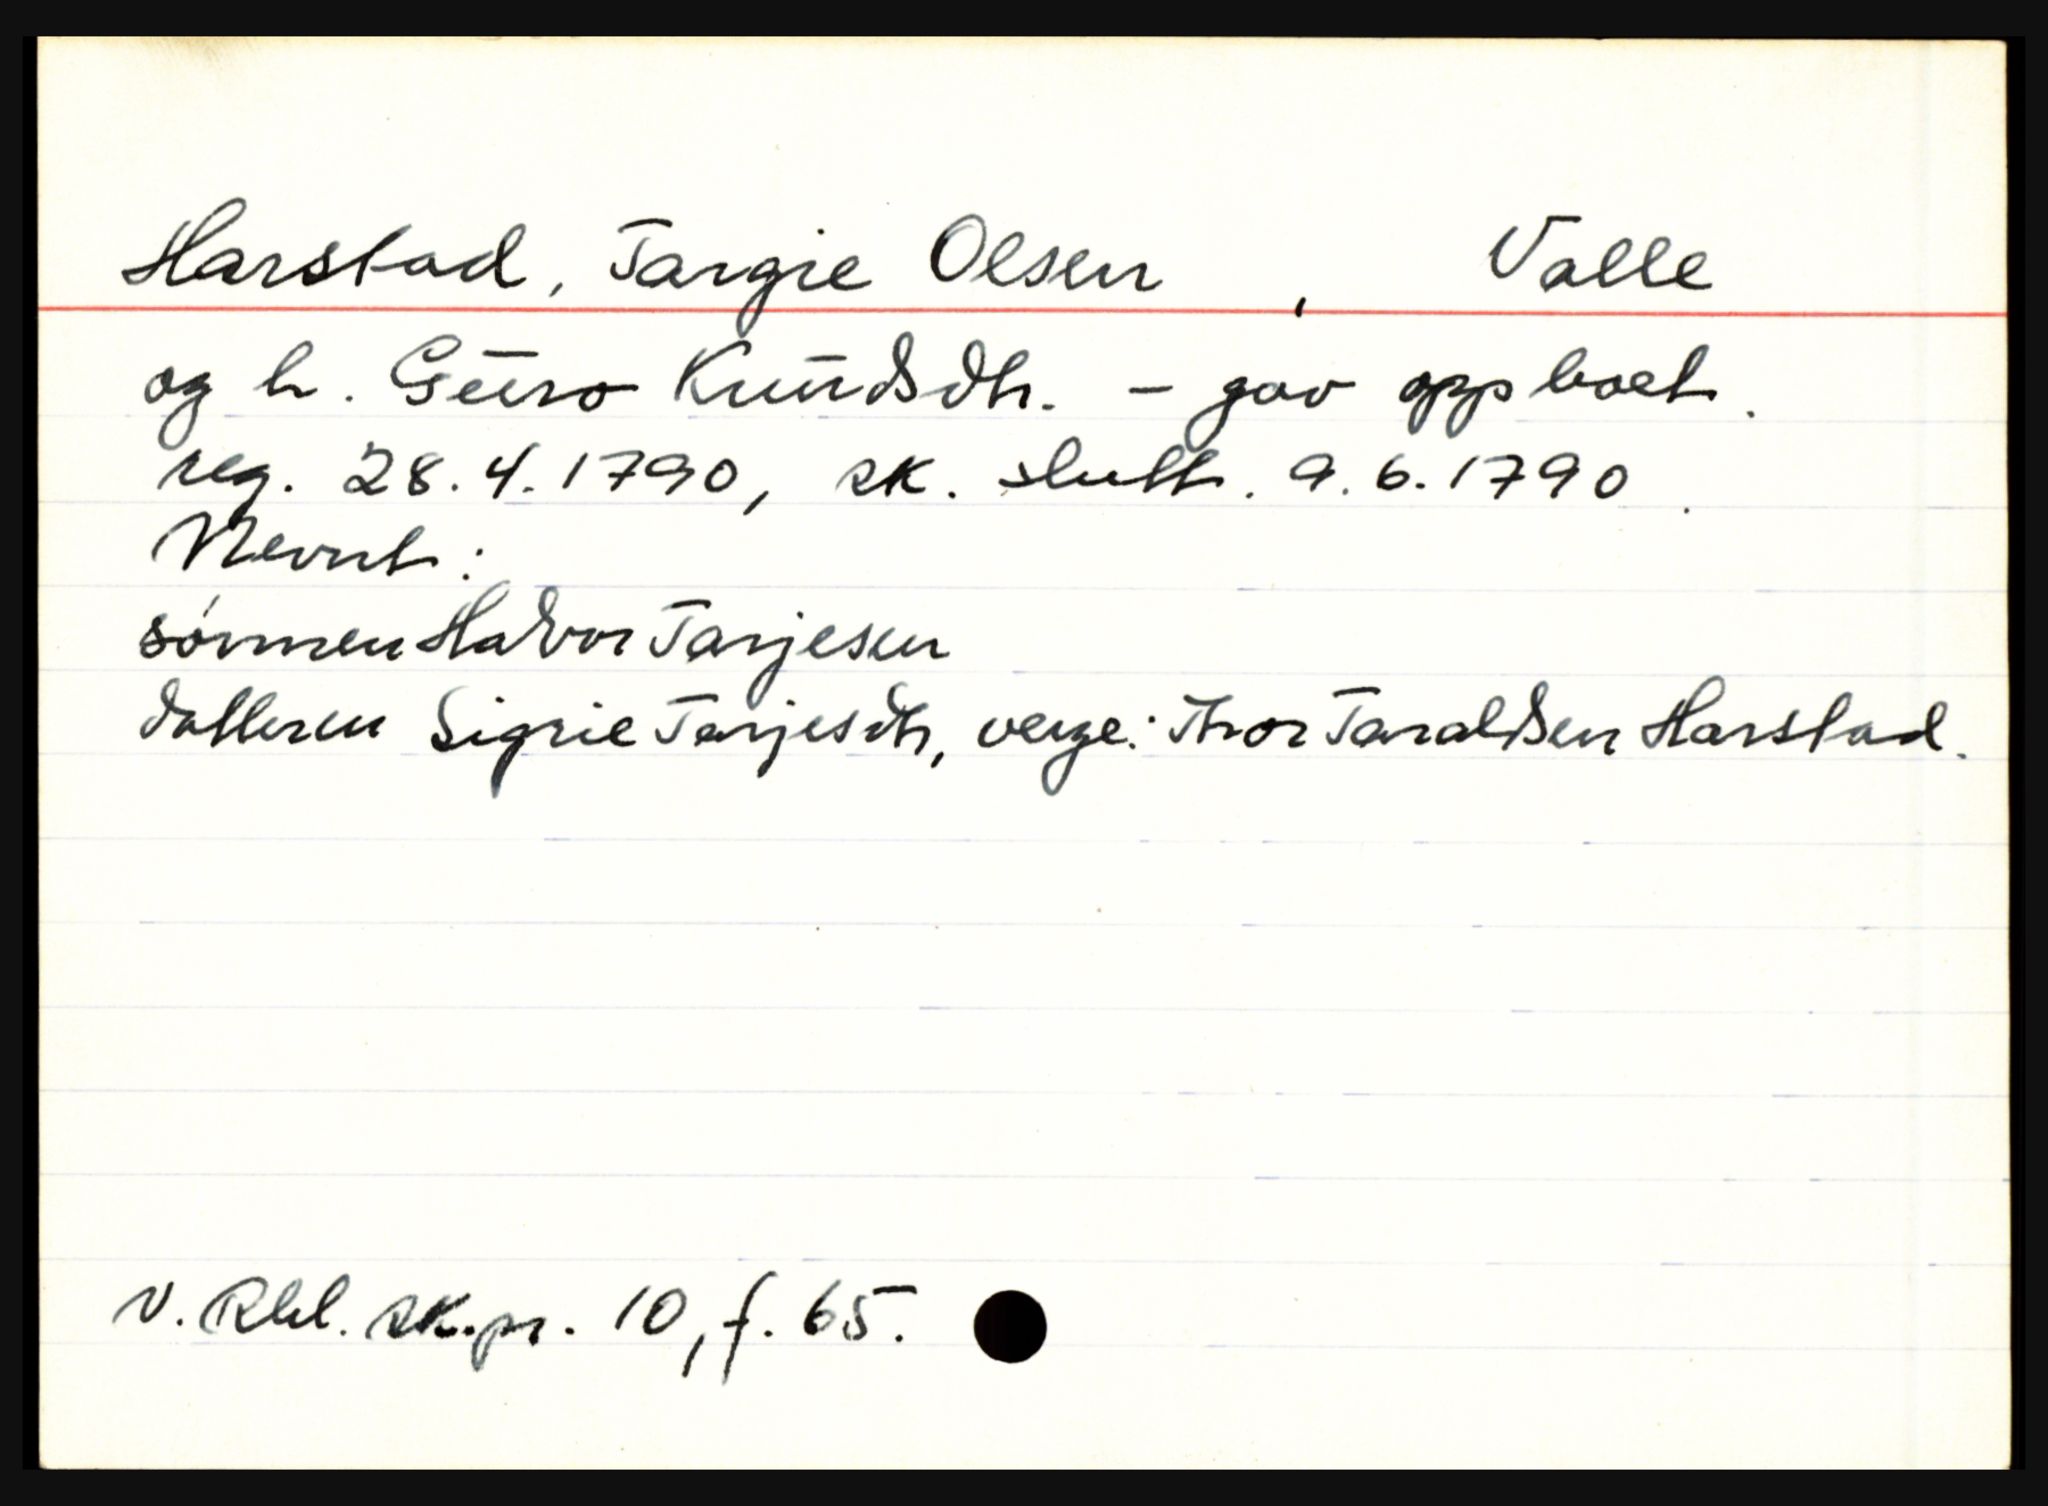 Harstad, Targie Olsen , Valle
og h. Guro Knudsdtr. - gav opp boet.
reg. 28.4.1790, sk. slutt. 9.6.1790.
Nevnt:
sønnen Halvor Tarjesen
datteren Sigrie Tarjesdtr, verge: Thor Taraldsen Harstad.
V. Rbl. sk.pr. 10, f. 65.